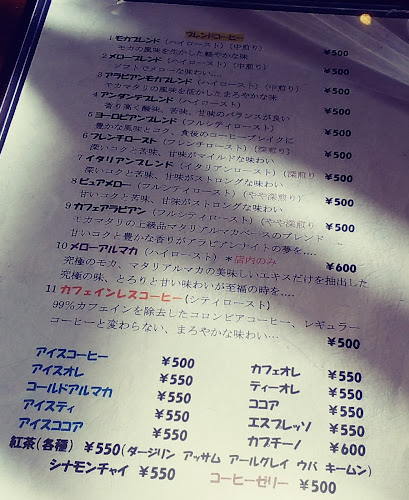 ブレンドコーヒー
1 モカブレンド (ハイロースト) (中煎り) ¥500
モカの風味を生かした軽やかな味
2 メローブレンド (ハイロースト) (中煎り) ¥500
ソフトでメローな味わい…
3 アラビアンモカブレンド (ハイロースト) (中煎り) ¥500
モカマタリの風味を活かしたまろやかな味
4 アンダンテブレンド (ハイロースト) ¥500
香り高く酸味、苦味、甘味のバランスが良い
5 ヨーロピアンブレンド (フルシティロースト) ¥500
豊かな風味とコク、食後のコーヒーブレイクに
6 フレンチロースト (フレンチロースト) (深煎り) ¥500
深いコクと苦味、甘味がマイルドな味わい
7 イタリアンブレンド (イタリアンロースト) (深煎り) ¥500
深いコクと苦味、甘味がストロングな味わい
8 ピュアメロー (フルシティロースト) (やや深煎り) ¥500
甘いコクと苦味、甘味がストロングな味わい
9 カフェアラビアン (フルシティロースト) (やや深煎り) ¥500
モカマタリの工級品マタリアルマカベースのブレンド
甘いコクと豊かな香りがアラビアンナイトの夢を….
10 メローアルマカ (ハイロースト) *店内のみ ¥600
究極のモカ、マタリアルマカの美味しいエキスだけを抽出した
究極の味、とろりと甘い味わいが至福の時を….
11 カフェインレスコーヒー (シティロースト)
99%カフェインを除去したコロンビアコーヒー、レギュラー
コーヒーと変わらない、まろやかな味わい… ¥500
アイスコーヒー ¥500 カフェオレ ¥550
アイスオレ ¥550 ティーオレ ¥550
コールドアルマカ ¥550 ココア ¥550
アイスティ ¥550 エスプレッソ ¥550
アイスココア ¥550 カプチーノ ¥600
紅茶(各種) ¥550(ダージリン アッサム アールグレイ ウバ キームン)
シナモンチャイ ¥550 コーヒーゼリー ¥500